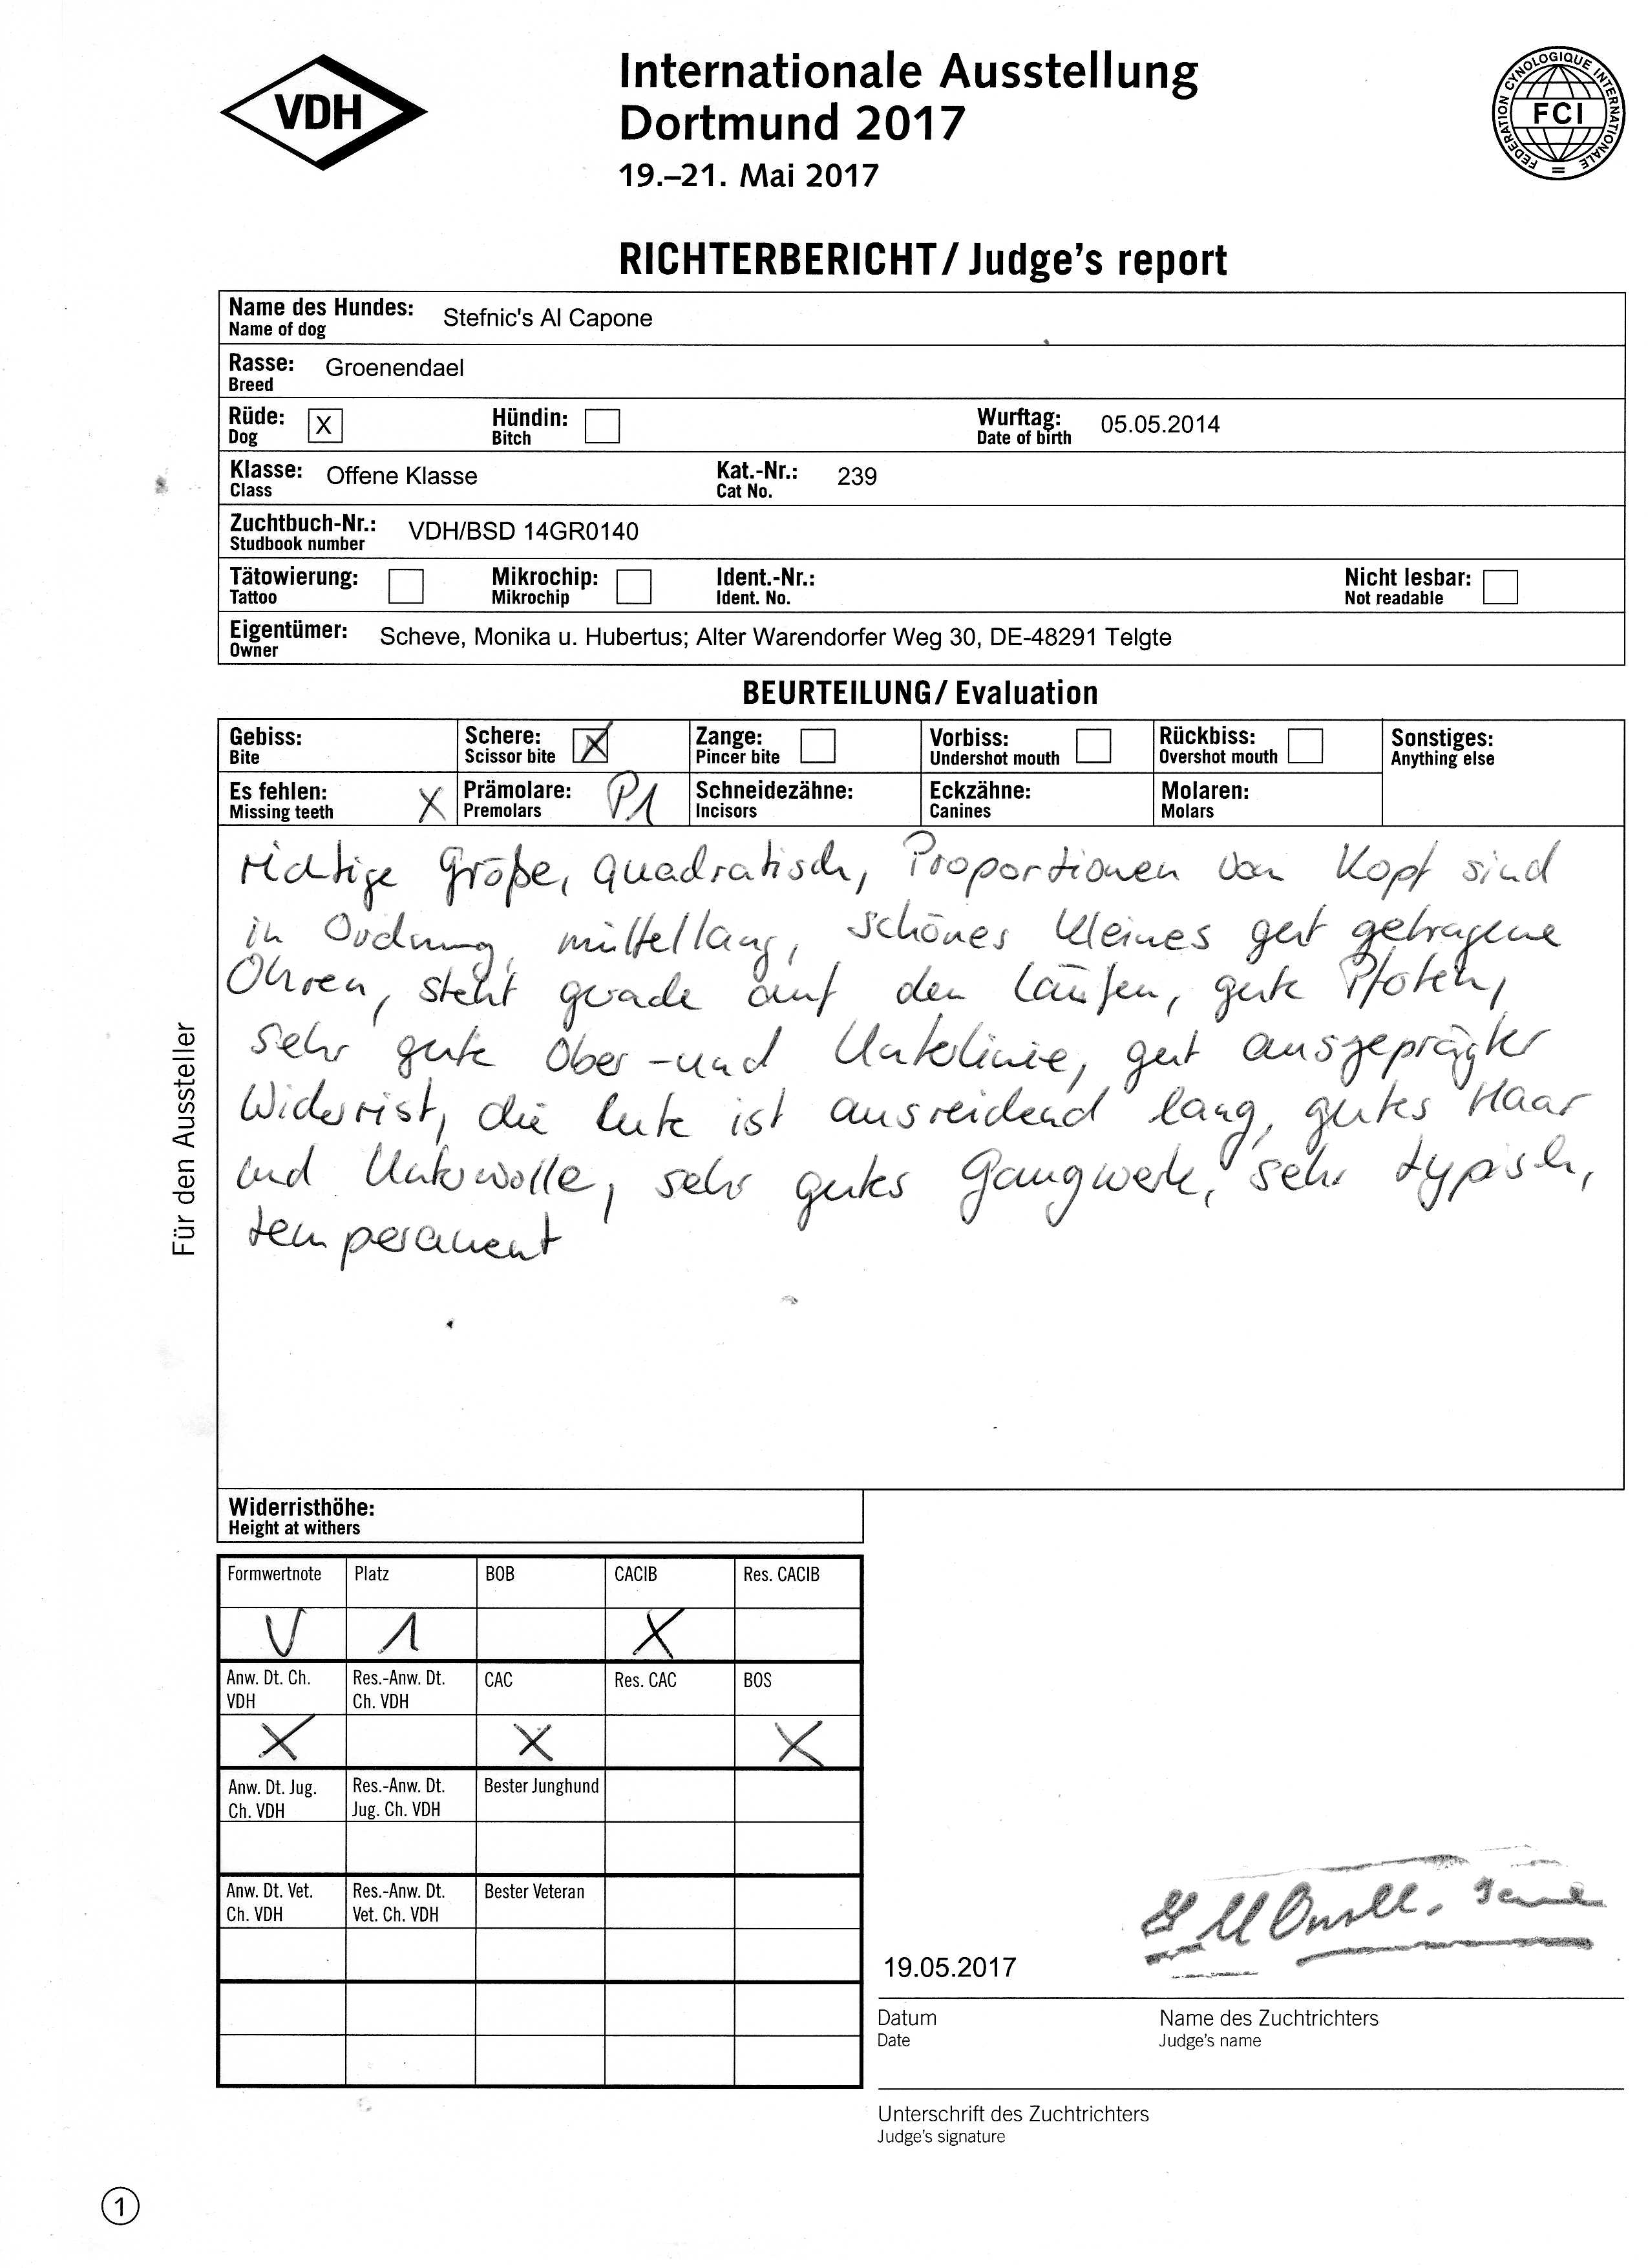 VDH
Internationale Ausstellung
Dortmund 2017
19.–21. Mai 2017
FEDERATION CYNOLOGIQUE INTERNATIONALE
FCI
RICHTERBERICHT/ Judge's report
Name des Hundes: Stefnic's Al Capone
Name of dog
Rasse: Groenendael
Breed
Rüde: X Hündin: Wurftag: 05.05.2014
Dog Bitch Date of birth
Klasse: Offene Klasse Kat.-Nr.: 239
Class Cat No.
Zuchtbuch-Nr.: VDH/BSD 14GR0140
Studbook number
Tätowierung: Mikrochip: Ident.-Nr.: Nicht lesbar:
Tattoo Mikrochip Ident. No. Not readable
Eigentümer: Scheve, Monika u. Hubertus; Alter Warendorfer Weg 30, DE-48291 Telgte
Owner
BEURTEILUNG/ Evaluation
Gebiss: Schere: X Zange: Vorbiss: Rückbiss: Sonstiges:
Bite Scissor bite Pincer bite Undershot mouth Overshot mouth Anything else
Es fehlen: X Prämolare: P1 Schneidezähne: Eckzähne: Molaren:
Missing teeth Premolars Incisors Canines Molars
richtige Größe, quadratisch, Proportionen von Kopf sind
in Ordnung, mittellang, schönes kleines gut getragene
Ohren, steht gerade auf den Läufen, gute Pfoten,
sehr gute Ober-und Unterlinie, gut ausgeprägter
Widerrist, die Rute ist ausreichend lang, gutes Haar
und Unterwolle, sehr gutes Gangwerk, sehr typisch,
temperament
Für den Aussteller
Widerristhöhe:
Height at withers
Formwertnote Platz BOB CACIB Res. CACIB
V 1 X
Anw. Dt. Ch. Res.-Anw. Dt. CAC Res. CAC BOS
VDH Ch. VDH
X X X
Anw. Dt. Jug. Res.-Anw. Dt. Bester Junghund
Ch. VDH Jug. Ch. VDH
Anw. Dt. Vet. Res.-Anw. Dt. Bester Veteran
Ch. VDH Vet. Ch. VDH
19.05.2017
Datum Name des Zuchtrichters
Date Judge's name
Unterschrift des Zuchtrichters
Judge's signature
1